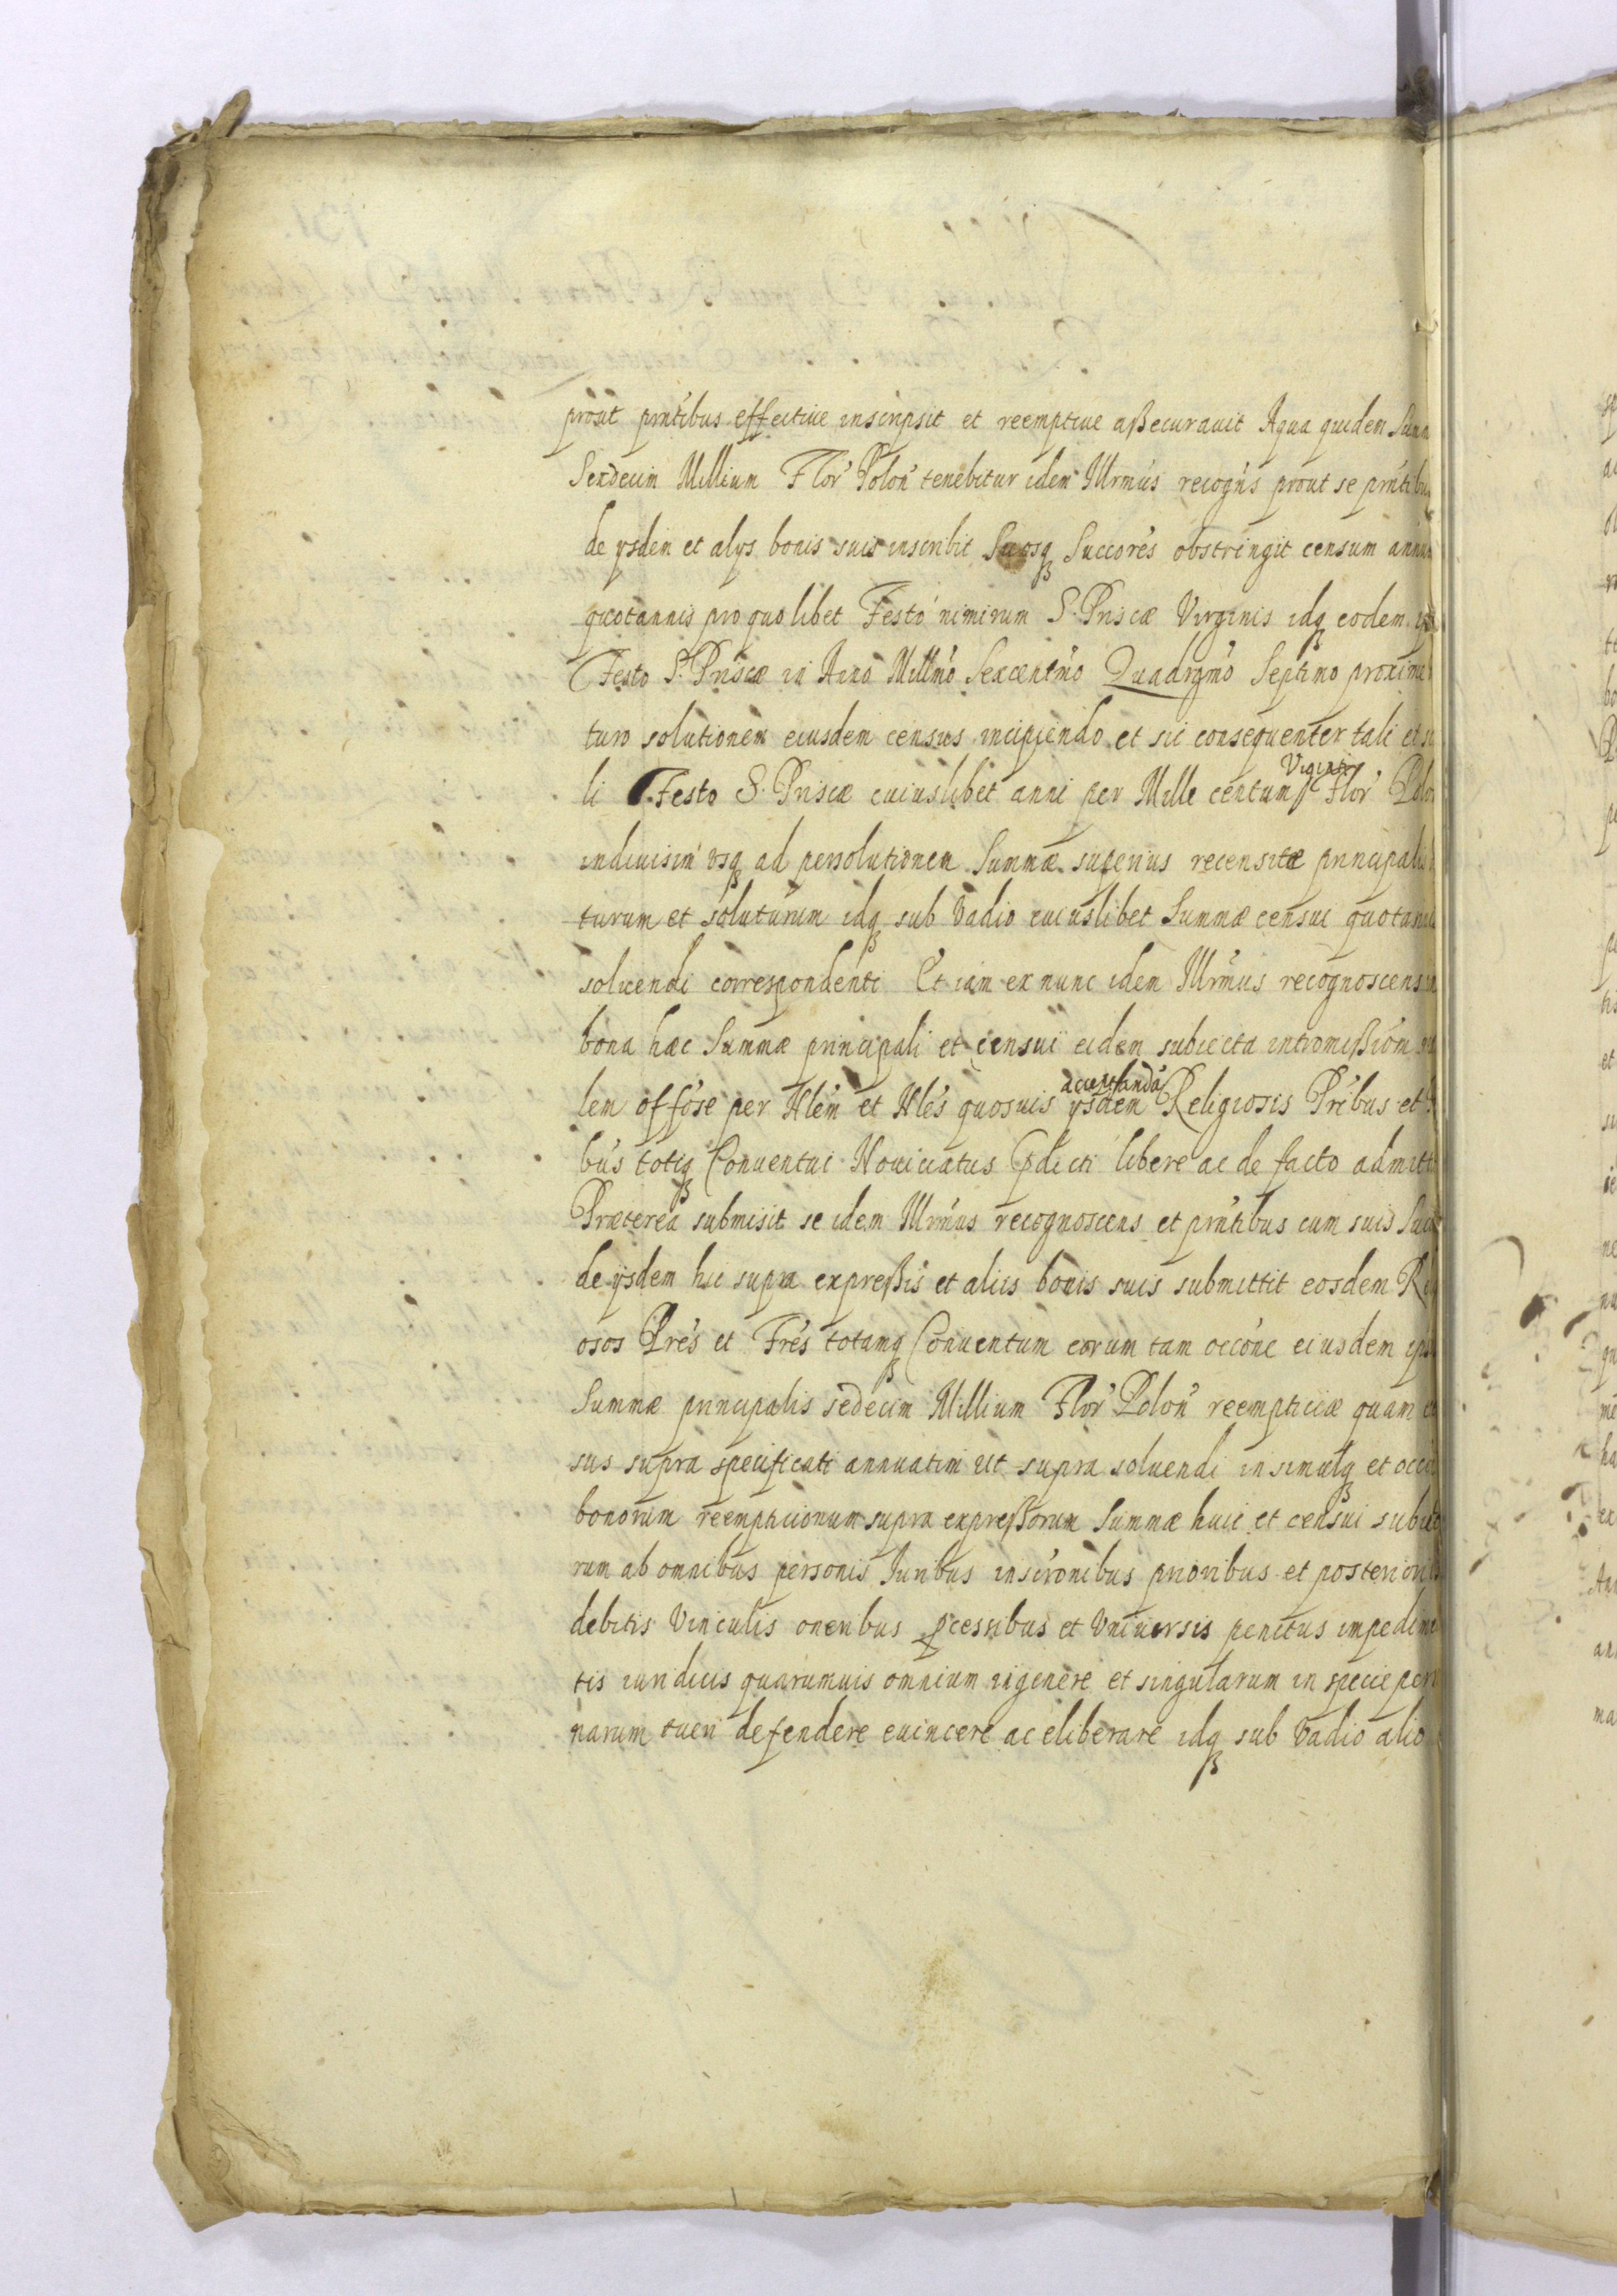 prout pntibus effectiue inscripsit et reemptiue aßecurauit A qua quidem Summa
Sexdecim Millium Flor Polon tenebitur idem Illrmus recogns prout se pntibus
de ysdem et alys bonis suis inscribit Suosq Succores obstringit censum annuum
quotannis pro quolibet Festo nimirum S. Priscæ Virginis idq eodem
Festo S. Priscæ in Anno Millmo Sexcentmo Quadrgmo Septimo proxime
turo solutionem eiusdem census incipiendo et sic consequenter tali et
li Festo S. Priscæ cuiuslibet anni per Mille centum Viginti Flor Polon
indiuisim usq ad persolutionem Summæ superius recensitæ principalis
turum et soluturum idq sub Vadio cuiuslibet Summæ census quotannis
soluendi correspondenti Et iam ex nunc idem Illrmus recognoscens in
bona hæc Summæ principali et censui eidem subiecta intromißiom
lem offose per Nlem et Nles quosuis ysdem acceptandã Religiosis Pribus et
bus totiq Conuentui Nouiciatus pdicti libere ac de facto admitt
Præterea submisit se idem Illrmus recognoscens et pntibus cum suis Succ
de ijsdem hic supra expreßis et aliis bonis suis submittit eosdem Rel
osos Pres et Fres totumq Conuentum eorum tam occone eiusdem
Summæ principalis sedecim Millium Flor Polon reempticiæ quam
sus supra specificati annuatim ut supra soluendi insimulq et
bonorum reempticionum supra expreßorum Summæ huic et censui subiecto
rum ab omnibus personis Iuribus inscronibus prioribus et posterioribus
debitis Vinculis oneribus pcessibus et Vniuersis penitus impedimen
tis iuridicis quarumuis omnium in genere et singularum in specie perso
narum tueri defendere euincere ac eliberare idq sub Vadio alio